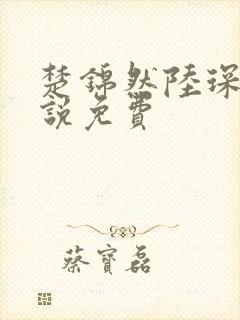 楚錦然陸琛
說免費
蔡寶磊